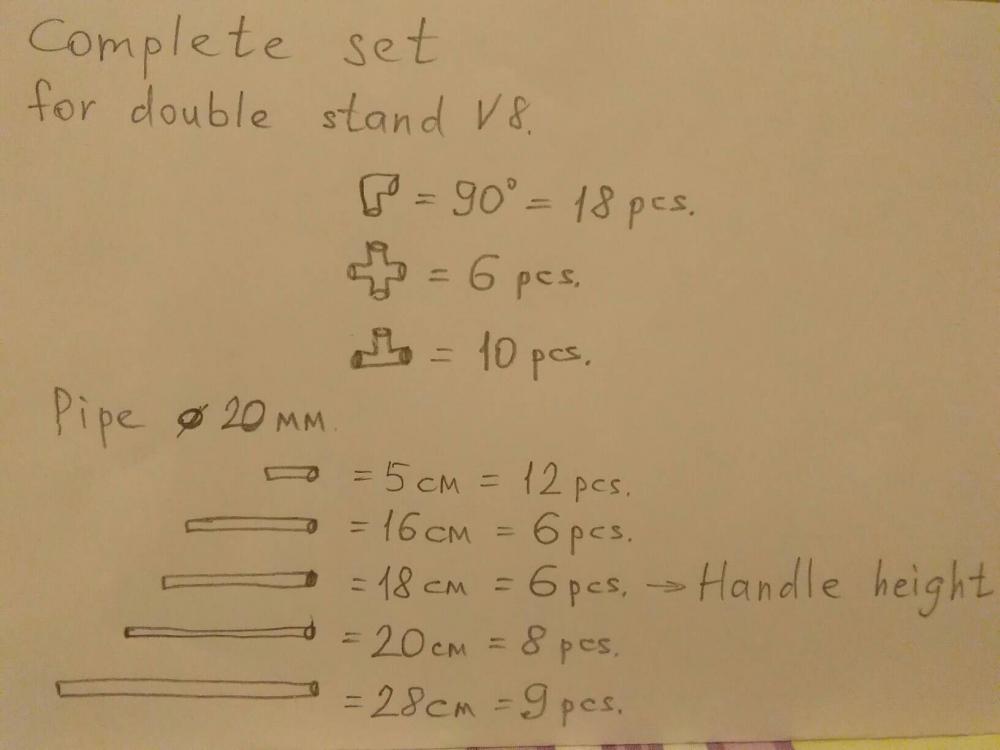 Complete set
for double stand V8.
= 90° = 18 pcs.
= 6 pcs.
= 10 pcs.
Pipe ø 20 мм.
= 5 см = 12 pcs.
= 16 см = 6 pcs.
= 18 см = 6 pcs. → Handle height
= 20 см = 8 pcs.
= 28 см = 9 pcs.